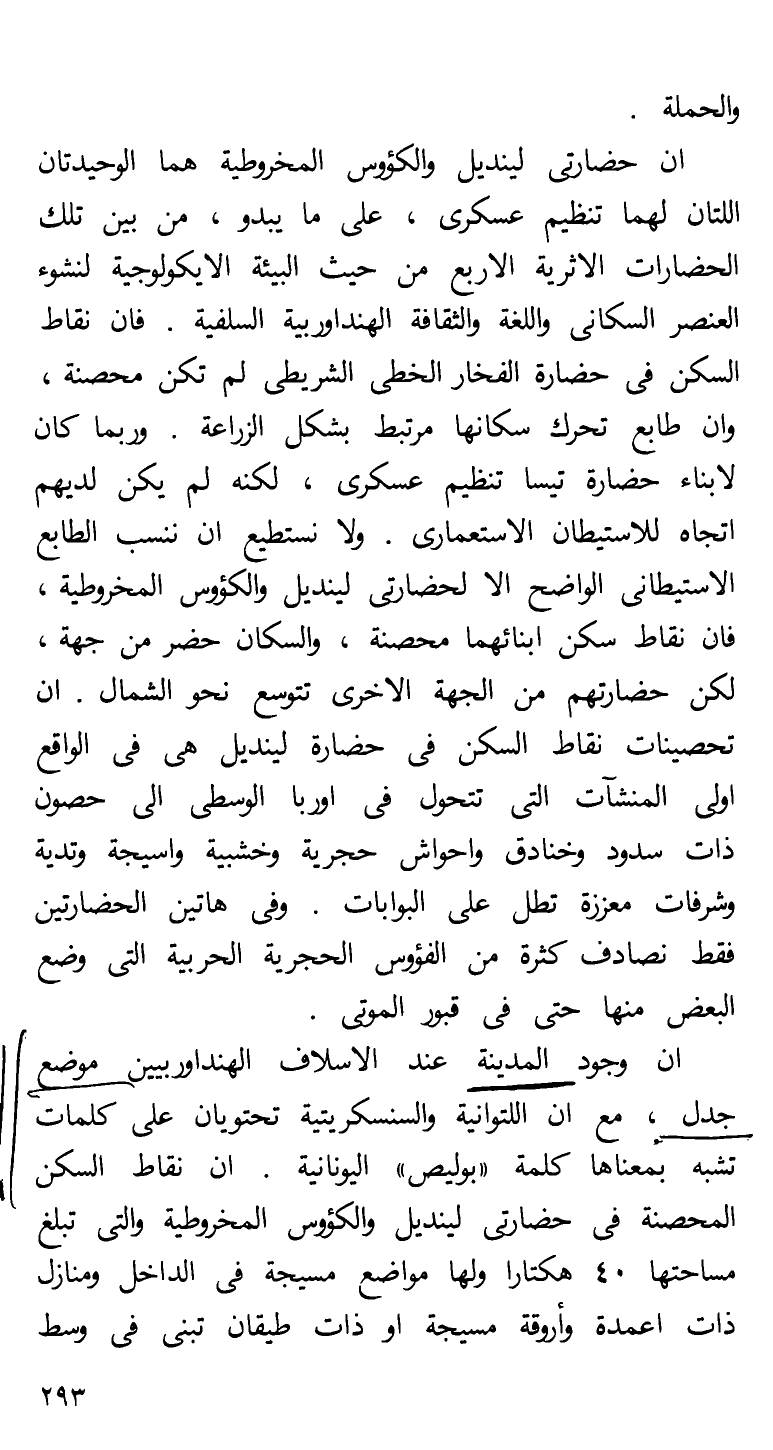 والحملة .
ان حضارتى لينديل والكؤوس المخروطية هما الوحيدتان
اللتان لهما تنظيم عسكرى ، على ما يبدو ، من بين تلك
الحضارات الاثرية الاربع من حيث البيئة الايكولوجية لنشوء
العنصر السكانى واللغة والثقافة الهنداوربية السلفية . فان نقاط
السكن فى حضارة الفخار الخطى الشريطى لم تكن محصنة ،
وان طابع تحرك سكانها مرتبط بشكل الزراعة . وربما كان
لابناء حضارة تيسا تنظيم عسكرى ، لكنه لم يكن لديهم
اتجاه للاستيطان الاستعمارى . ولا نستطيع ان ننسب الطابع
الاستيطانى الواضح الا لحضارتى لينديل والكؤوس المخروطية ،
فان نقاط سكن ابنائهما محصنة ، والسكان حضر من جهة ،
لكن حضارتهم من الجهة الاخرى تتوسع نحو الشمال . ان
تحصينات نقاط السكن فى حضارة لينديل هى فى الواقع
اولى المنشآت التى تتحول فى اوربا الوسطى الى حصون
ذات سدود وخنادق واحواش حجرية وخشبية واسيجة وتدية
وشرفات معززة تطل على البوابات . وفى هاتين الحضارتين
فقط نصادف كثرة من الفؤوس الحجرية الحربية التى وضع
البعض منها حتى فى قبور الموتى .
ان وجود المدينة عند الاسلاف الهنداوربيين موضع
جدل ، مع ان اللتوانية والسنسكريتية تحتويان على كلمات
تشبه بمعناها كلمة «بوليص» اليونانية . ان نقاط السكن
المحصنة فى حضارتى لينديل والكؤوس المخروطية والتى تبلغ
مساحتها ٤٠ هكتارا ولها مواضع مسيجة فى الداخل ومنازل
ذات اعمدة وأروقة مسيجة او ذات طيقان تبنى فى وسط
٢٩٣